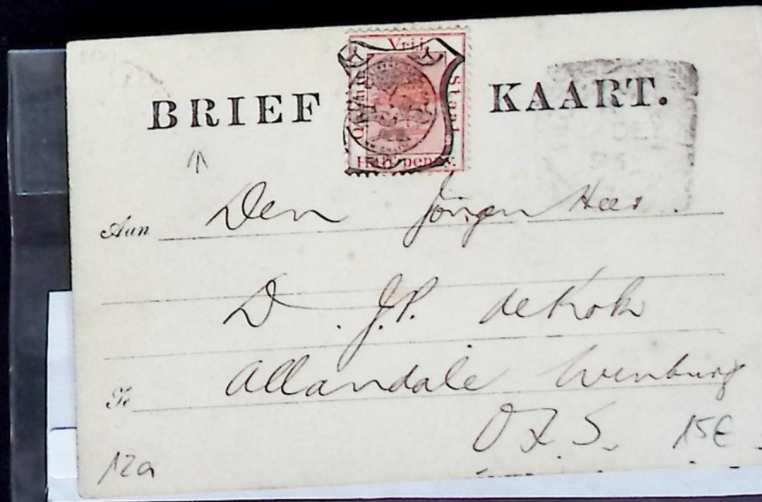 BRIEF KAART.
Vrij
Oranje Staat
Half-penny.
Aan Den Jongen Heer
D. J.P. de Kok
Te Allandale Winburg
O F S. 15€
12a